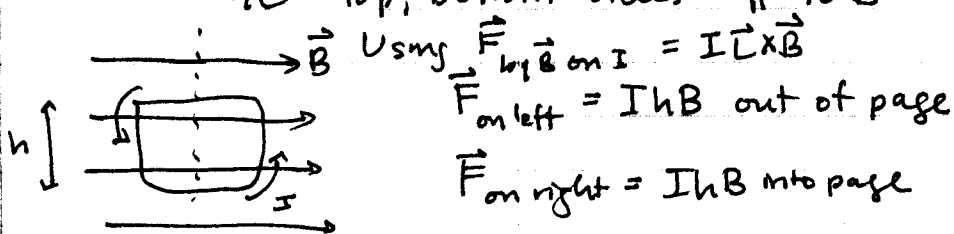 top, bottom sides
B⃗ Using F⃗ by B⃗ on I = I L⃗ x B⃗
F⃗ on left = I h B out of page
h
F⃗ on right = I h B into page
I